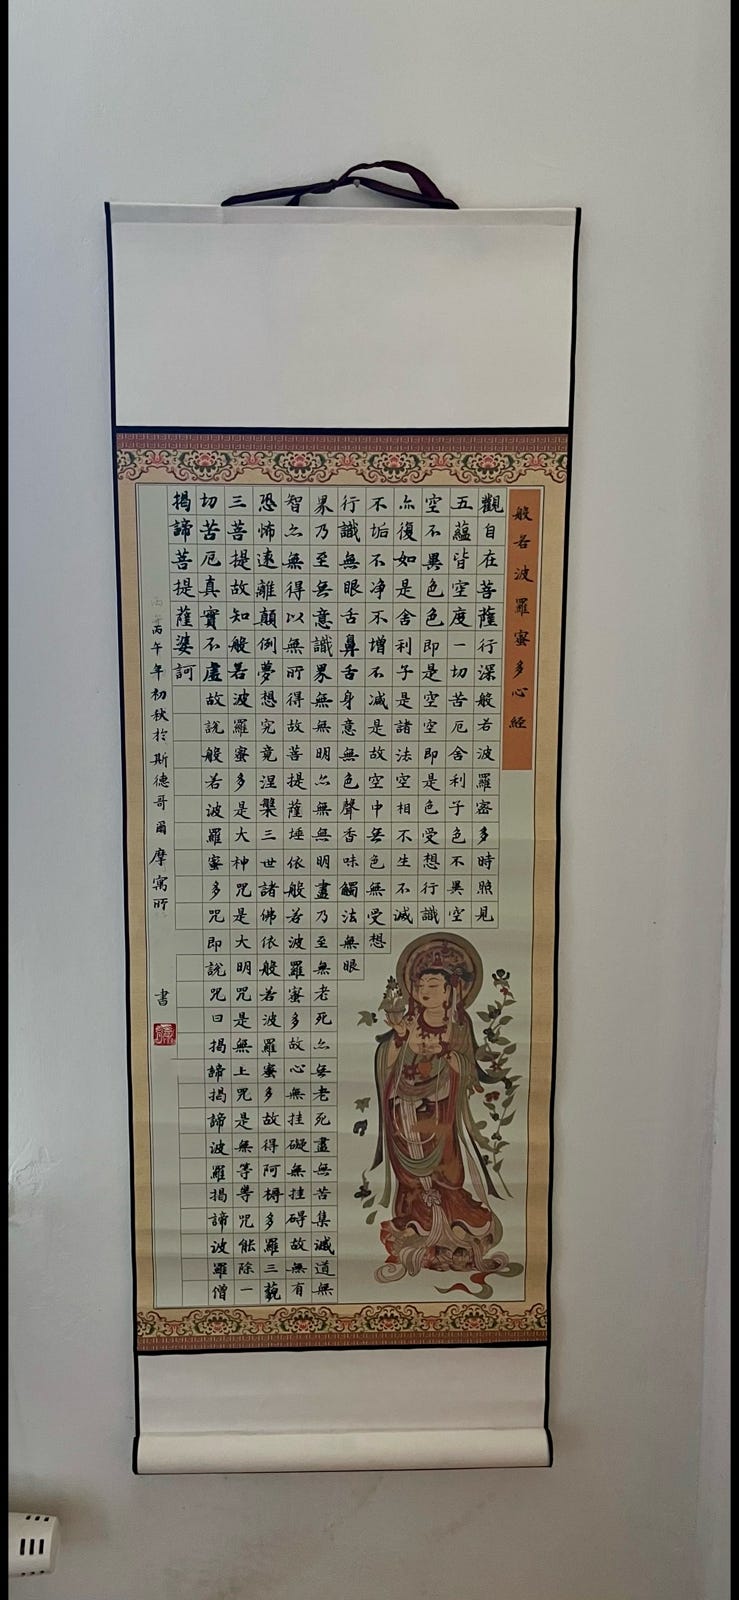 般若波羅蜜多心經
觀自在菩薩行深般若波羅密多時照見
五蘊皆空度一切苦厄舍利子色不異空
空不異色色即是空空即是色受想行識
亦復如是舍利子是諸法空相不生不滅
不垢不净不增不减是故空中无色無受想
行識無眼舌鼻舌身意無色聲香味觸法無眼
界乃至無意識界無無明亦無無明盡乃至無老死亦無老死盡無苦集滅道無
智亦無得以無所得故菩提薩埵依般若波羅蜜多故心無挂礙無挂碍故無有
恐怖遠離顛例夢想究竟涅槃三世諸佛依般若波羅蜜多故得阿耨多羅三藐
三菩提故知般若波羅蜜多是大神咒是大明咒是無上咒是無等等咒能除一
切苦厄真實不虛故說般若波羅蜜多咒即說咒曰揭諦揭諦波羅揭諦波羅僧
揭諦菩提薩婆訶
丙午年初秋於斯德哥爾摩寓所書